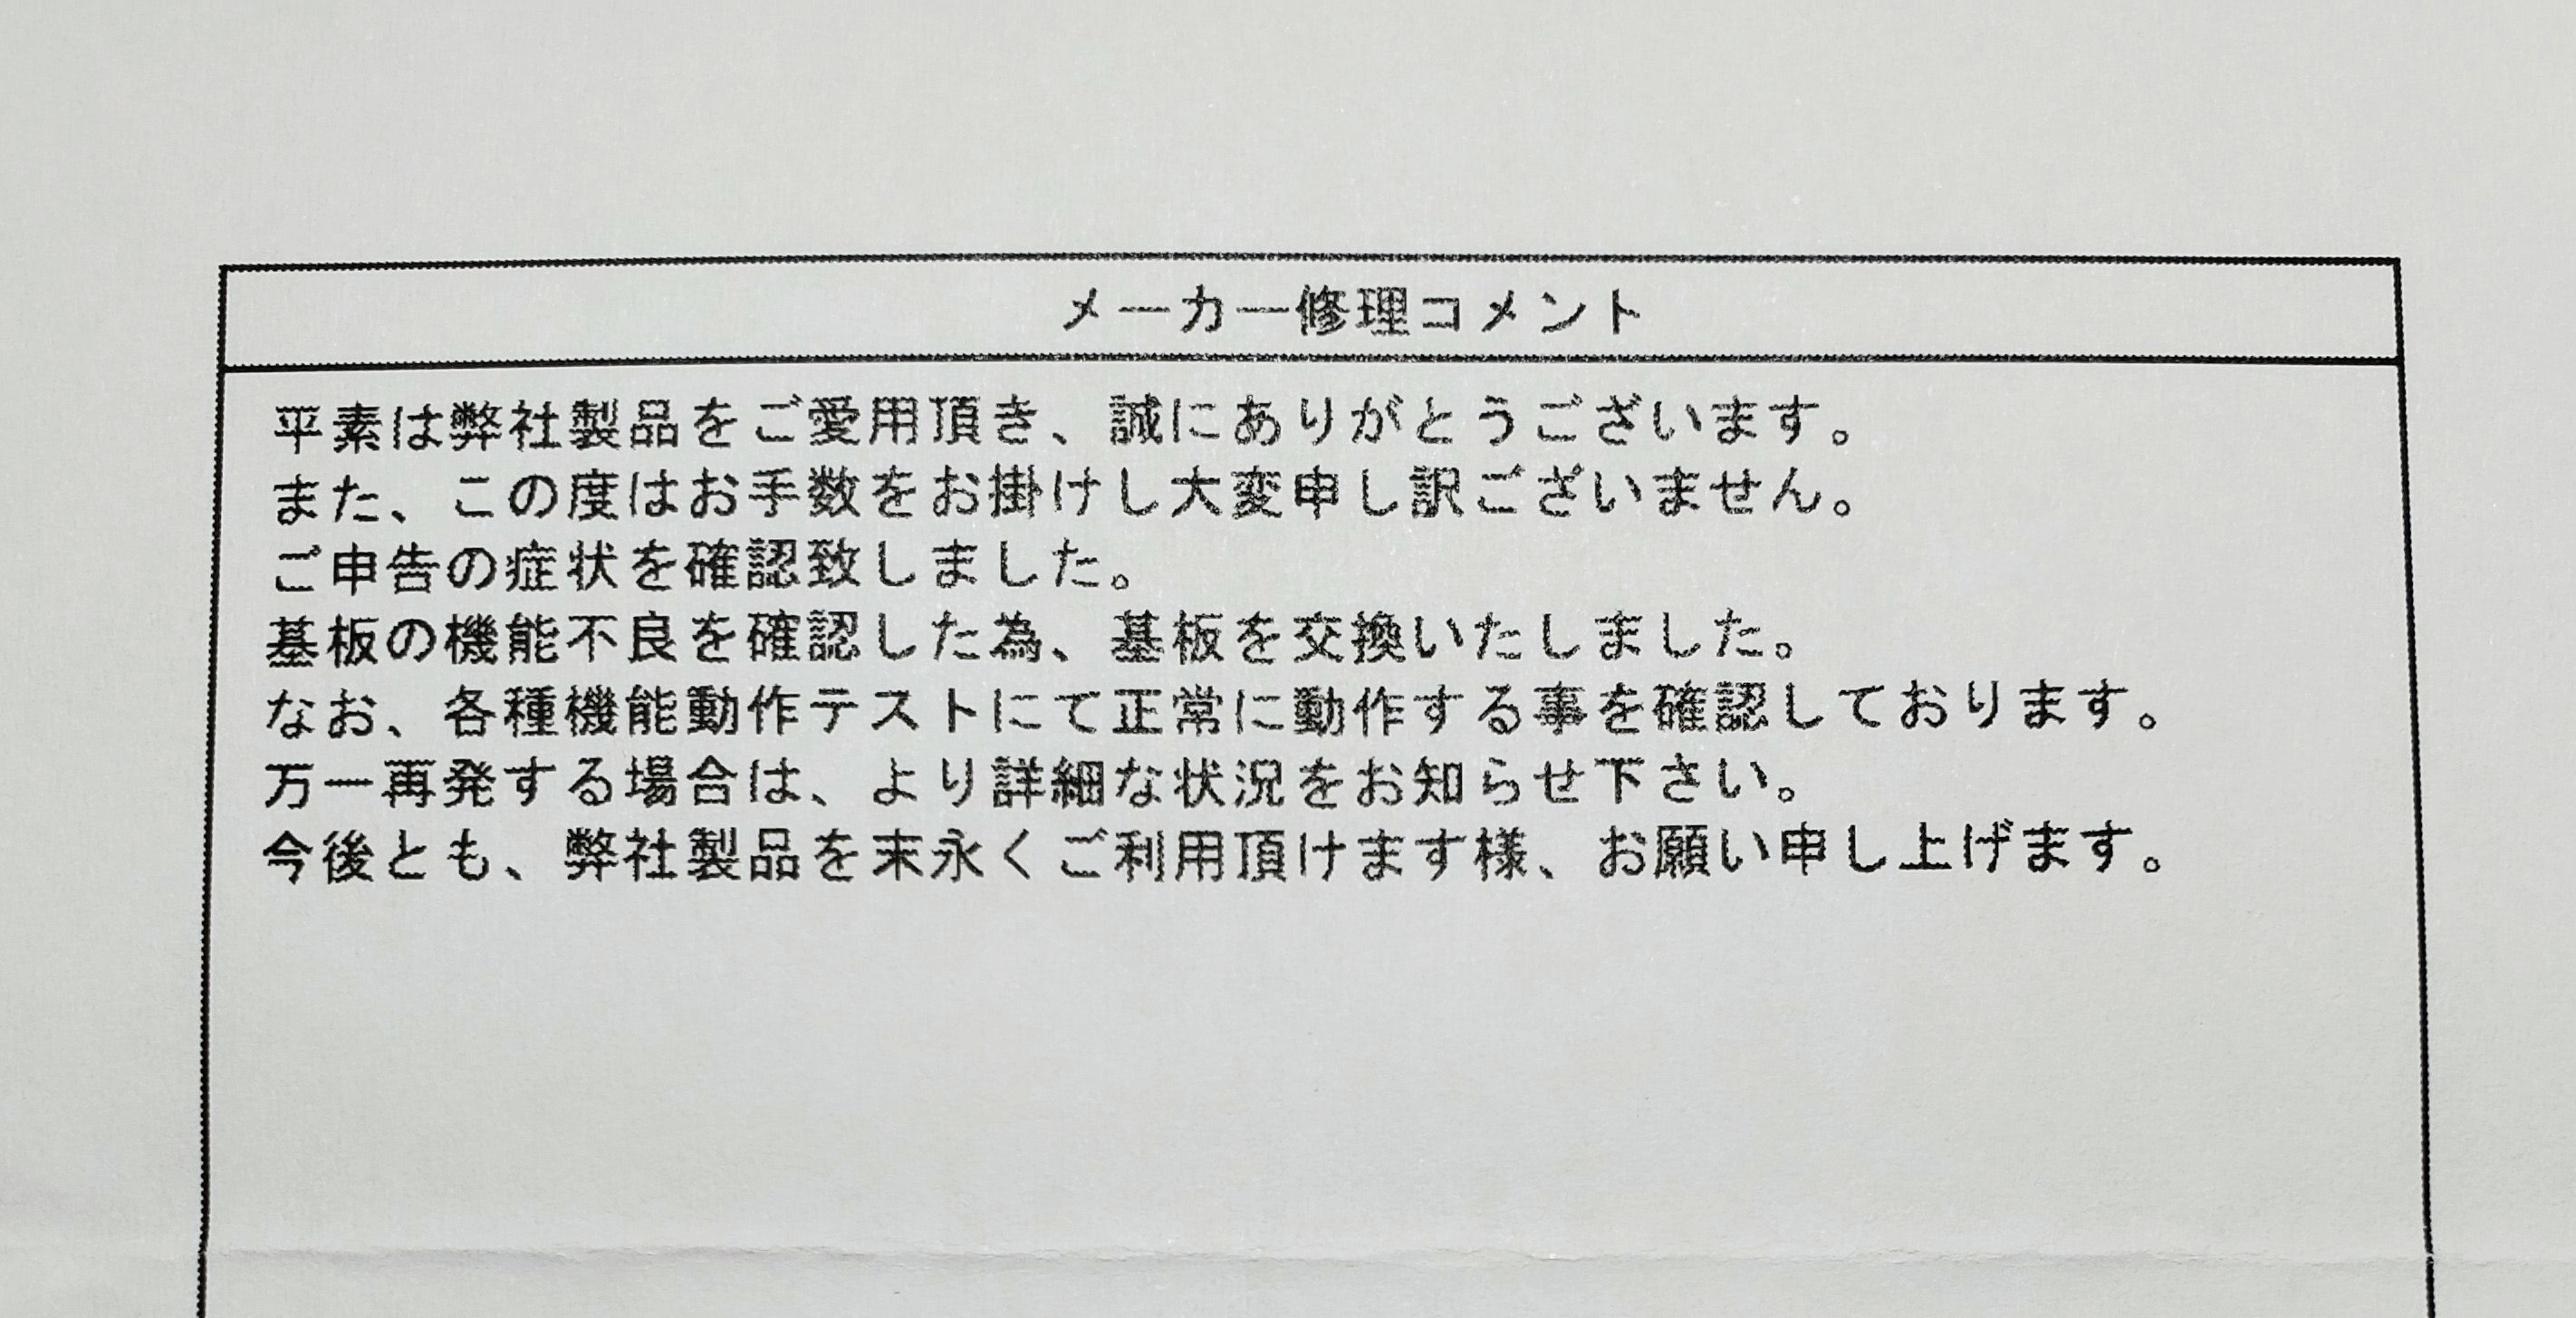 メーカー修理コメント
平素は弊社製品をご愛用頂き、誠にありがとうございます。
また、この度はお手数をお掛けし大変申し訳ございません。
ご申告の症状を確認致しました。
基板の機能不良を確認した為、基板を交換いたしました。
なお、各種機能動作テストにて正常に動作する事を確認しております。
万一再発する場合は、より詳細な状況をお知らせ下さい。
今後とも、弊社製品を末永くご利用頂けます様、お願い申し上げます。